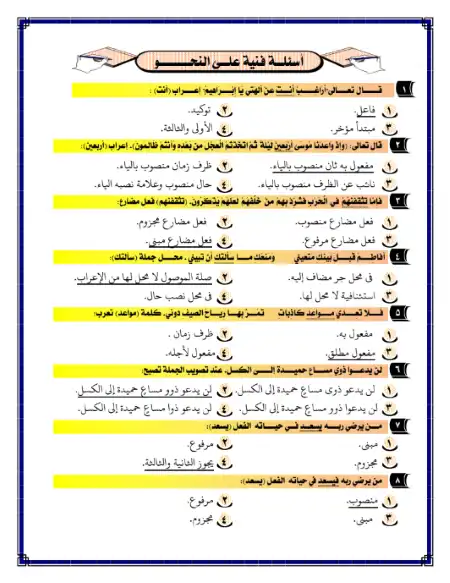 أسئلة فنية على النحو
١ قال تعالى: (أراغب أنت عن آلهتي يا إبراهيم) إعراب (أنت) :
١ فاعل. ٢ توكيد.
٣ مبتدأ مؤخر. ٤ الأولى والثالثة.
٢ قال تعالى: (وإذ واعدنا موسى أربعين ليلة ثم اتخذتم العجل من بعده وأنتم ظالمون). إعراب (أربعين):
١ مفعول به ثان منصوب بالياء. ٢ ظرف زمان منصوب بالياء.
٣ نائب عن الظرف منصوب بالياء. ٤ حال منصوب وعلامة نصبه الياء.
٣ فإما تثقفنهم في الحرب فشرد بهم من خلفهم لعلهم يذكرون. (تثقفنهم) فعل مضارع:
١ فعل مضارع منصوب. ٢ فعل مضارع مجزوم.
٣ فعل مضارع مرفوع. ٤ فعل مضارع مبنى.
٤ أفاطم قبل بينك متعيني ومنعك ما سألتك أن تبيني . محل جملة (سألتك):
١ فى محل جر مضاف إليه. ٢ صلة الموصول لا محل لها من الإعراب.
٣ استئنافية لا محل لها. ٤ فى محل نصب حال.
٥ فلا تعدي مواعد كاذبات تمر بها رياح الصيف دوني. كلمة (مواعد) تعرب:
١ مفعول به. ٢ ظرف زمان .
٣ مفعول مطلق. ٤ مفعول لأجله.
٦ لن يدعوا ذوي مساع حميدة إلى الكسل. عند تصويب الجملة تصبح:
١ لن يدعو ذوى مساع حميدة إلى الكسل. ٢ لن يدعو ذوو مساع حميدة إلى الكسل.
٣ لن يدعوا ذوو مساع حميدة إلى الكسل. ٤ لن يدعو ذوا مساع حميدة إلى الكسل.
٧ من يرضي ربه يسعد في حياته الفعل (يسعد):
١ مبنى. ٢ مرفوع.
٣ مجزوم. ٤ يجوز الثانية والثالثة.
٨ من يرضي ربه فيسعد في حياته الفعل (يسعد):
١ منصوب. ٢ مرفوع.
٣ مبنى. ٤ مجزوم.